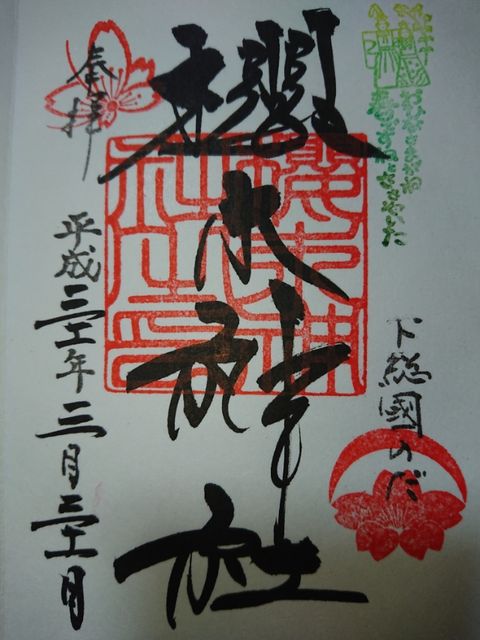 奉拝
櫻木神社
下総國のだ
平成三十一年三月三十一日
櫻木神
社之印